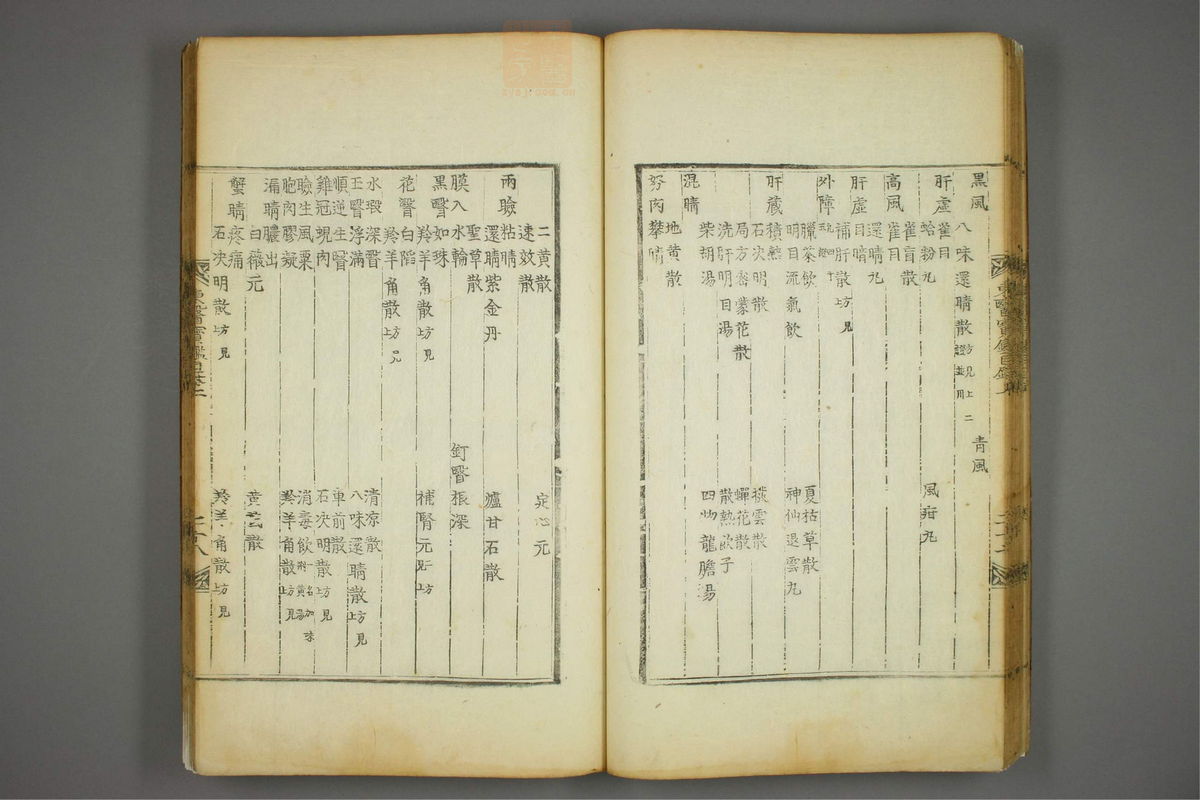 黑風　青風
八味還睛散方見上二證並用
肝虛雀目
蛤粉丸　風疳丸
雀盲散
高風雀目
還睛丸
肝虛目暗
補肝散方見上
外障
臘茶飲　夏枯草散
明目流氣飲　神仙退雲丸
肝藏積熱
石決明散　撥雲散
局方密蒙花散　蟬花散
洗肝明目湯　散熱飲子
柴胡湯　四物龍膽湯
混睛
地黃散
努肉攀睛
二黃散　定心元
速效散
兩瞼粘睛
還睛紫金丹　爐甘石散
聖草散
膜入水輪　釘瞖根深
黑瞖如珠
羚羊角散方見上　補腎元方見上
花瞖白陷
羚羊角散方見上
水瑕深瞖　清凉散
玉瞖浮滿　八味還睛散方見上
順逆生瞖　車前散
雞冠蜆肉　石決明散方見上
瞼生風粟　消毒飲一名加味荊黃湯
胞肉膠凝　羚羊角散方見上
漏睛膿出
白薇元　黃芪散
蟹睛疼痛
石決明散方見上　羚羊角散方見上
東醫寶鑑目錄上
東醫寶鑑目錄上
二十八